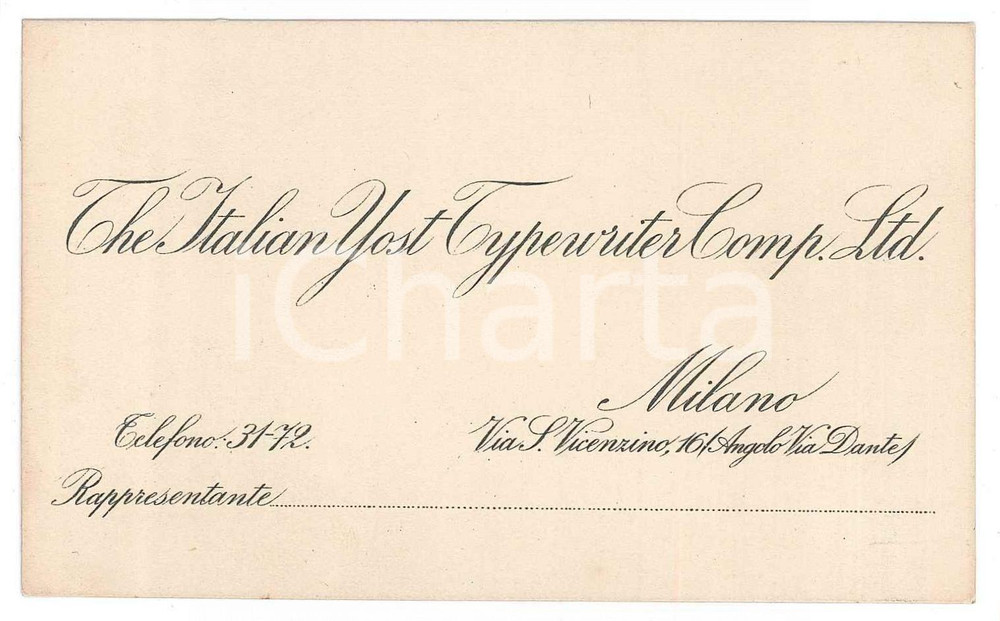 The Italian Yost Typewriter Comp. Ltd.
iCharta
Milano
Telefono: 31-72.
Via S. Vicenzino, 16 (Angolo Via Dante)
Rappresentante